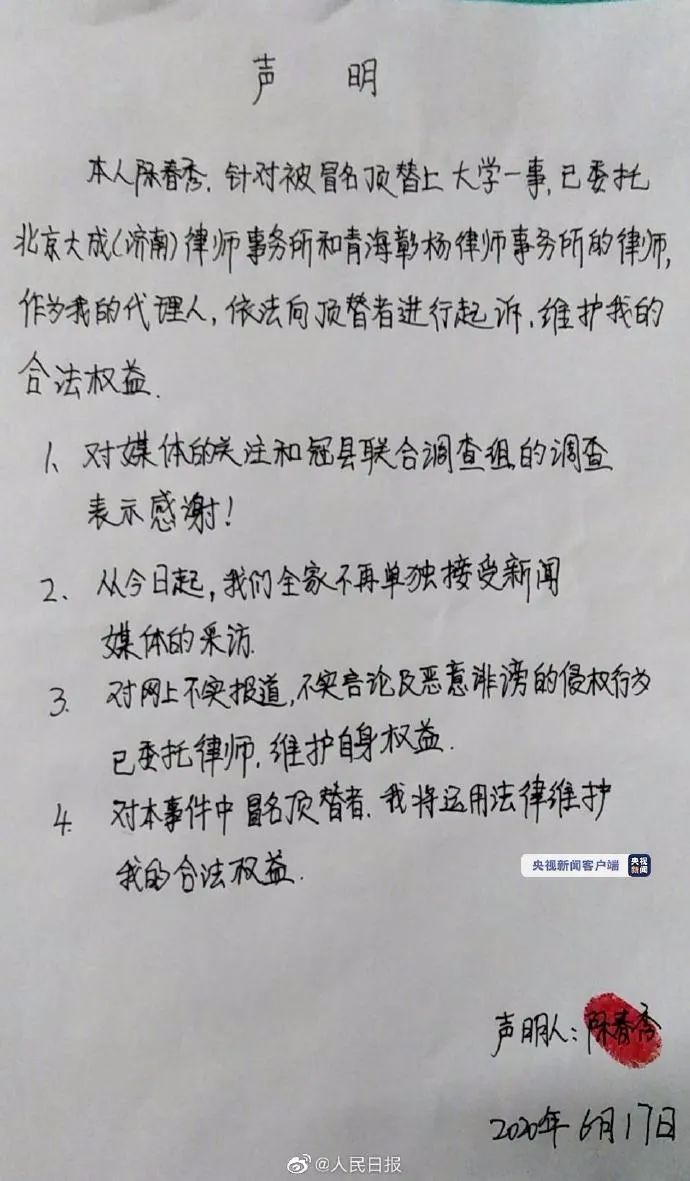 声 明
本人陈春秀,针对被冒名顶替上大学一事,已委托
北京大成(济南)律师事务所和青海彰杨律师事务所的律师,
作为我的代理人,依法向顶替者进行起诉,维护我的
合法权益.
1、对媒体的关注和冠县联合调查组的调查
表示感谢!
2、从今日起,我们全家不再单独接受新闻
媒体的采访.
3、对网上不实报道,不实言论及恶意诽谤的侵权行为
已委托律师,维护自身权益.
4、对本事件中冒名顶替者,我将运用法律维护
我的合法权益.
央视新闻客户端 央视新闻
声明人:陈春秀
2020年6月17日
@人民日报